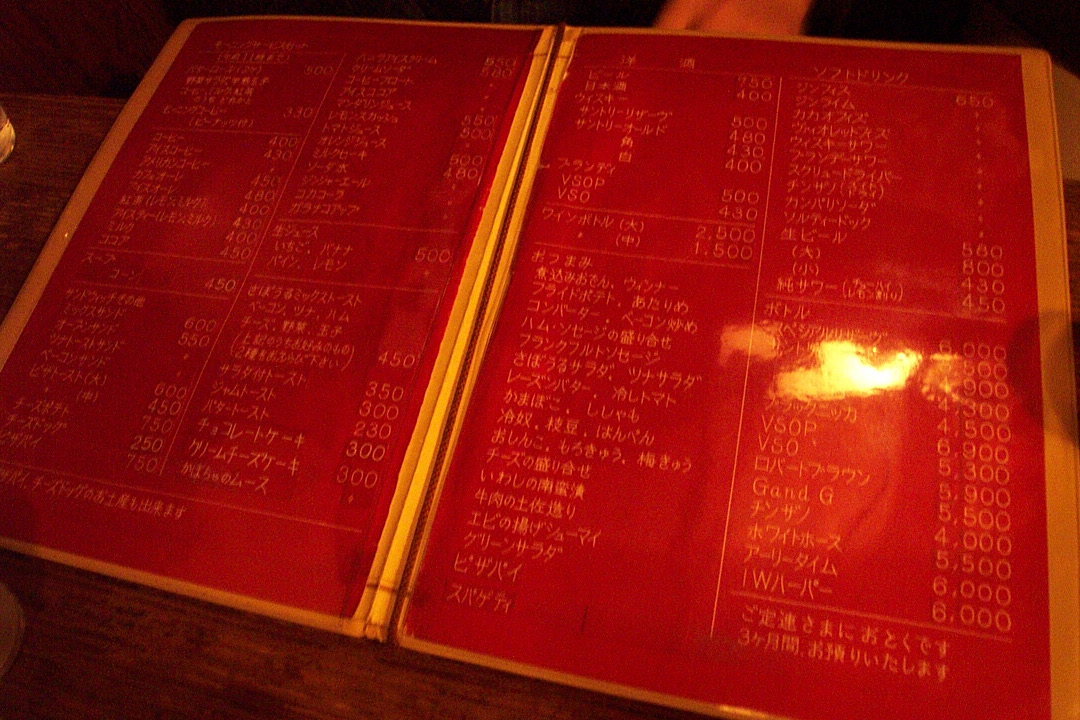 モーニングサービスセット
(午前11時まで)
500
モーニングコーヒー
(ピーナッツ付)
330
コーヒー 400
アイスコーヒー 430
アメリカンコーヒー
カフェオーレ 450
アイスオーレ 480
紅茶(レモン、ミルク) 400
アイスティー(レモン、ミルク) 430
ミルク 400
ココア 450
スープ
コーン 450
サンドウィッチその他
ミックスサンド 600
オープンサンド 550
ツナトーストサンド
ベーコンサンド
ピザトースト(大) 600
〃 (中) 450
チーズポテト 750
チーズドッグ 250
ピザパイ 750
ピザパイ、チーズドッグのお土産も出来ます
バニラアイスクリーム 550
クリームソーダー 580
コーヒーフロート
アイスココア
マンダリンジュース
レモンスカッシュ 550
トマトジュース 500
オレンジジュース
ミルクセーキ 500
ソーダ水 480
ジンジャエール
コカコーラ
ガラナコアップ
生ジュース
いちご、バナナ 500
パイン、レモン
さぼうるミックストースト
ベーコン ツナ ハム
チーズ、野菜、玉子
(上記のうちお好みのもの)
(2種をお選び下さい) 450
サラダ付トースト 350
ジャムトースト 300
バタートースト 230
チョコレートケーキ 300
クリームチーズケーキ
かぼちゃのムース 300
洋酒
ビール 750
日本酒 400
ウィスキー
サントリーリザーヴ 500
サントリーオールド 480
角 430
白 400
ブランディ
VSOP 500
VSO 430
ワインボトル (大) 2,500
〃 (中) 1,500
おつまみ
煮込みおでん、ウィンナー
フライドポテト、あたりめ
コンバーター、ベーコン炒め
ハム・ソセージの盛り合せ
フランクフルトソセージ
さぼうるサラダ、ツナサラダ
レーズンバター、冷しトマト
かまぼこ、ししゃも
冷奴、枝豆、はんぺん
おしんこ、もろきゅう、梅きゅう
チーズの盛り合せ
いわしの南蛮漬
牛肉の土佐造り
エビの揚げシューマイ
グリーンサラダ
ピザパイ
スパゲティ
ソフトドリンク
ジンフィス 650
ジンライム
カカオフィズ
ヴィオレットフィズ
ウィスキーサワー
ブランデーサワー
スクリュードライバー
チンザノ
カンパリソーダ
ソルティードッグ
生ビール
(大) 580
(小) 800
純サワー 430
450
ボトル
スペシャルリザーヴ 6,000
4,300
4,500
VSOP 6,900
VSO 5,300
ロバートブラウン 5,900
Gand G 5,500
チンザノ 4,000
ホワイトホース 5,500
アーリータイム 6,000
IWハーパー 6,000
ご定連さまにおとくです
3ヶ月間、お預りいたします